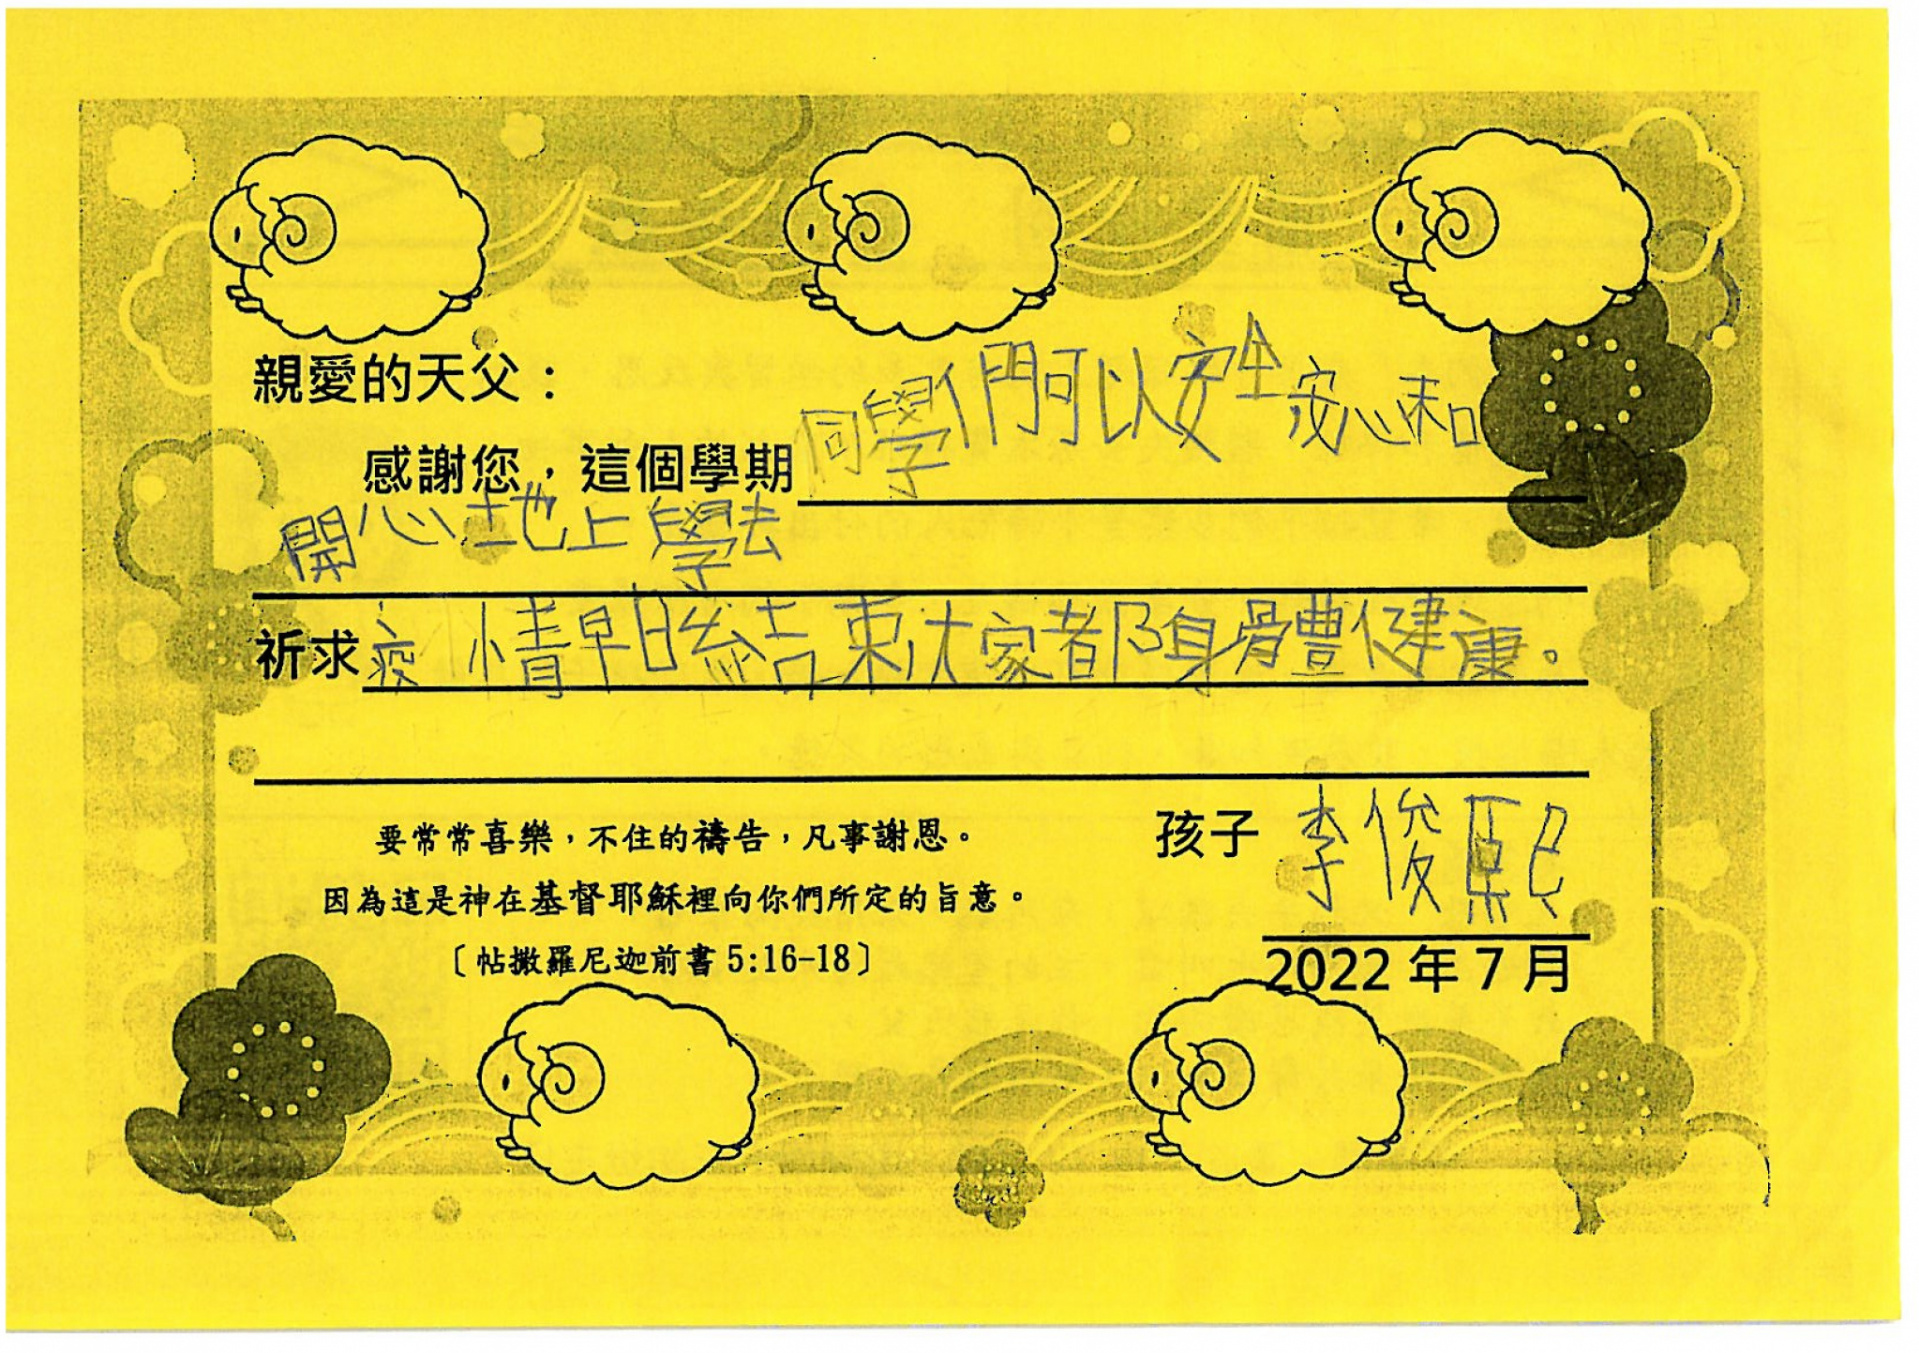 親愛的天父：
感謝您，這個學期同學們可以安全安心和
開心地上學去
祈求疫情早日結束大家都身體健康。
要常常喜樂，不住的禱告，凡事謝恩。
因為這是神在基督耶穌裡向你們所定的旨意。
〔帖撒羅尼迦前書 5:16-18〕
孩子 李俊熙
2022 年 7 月